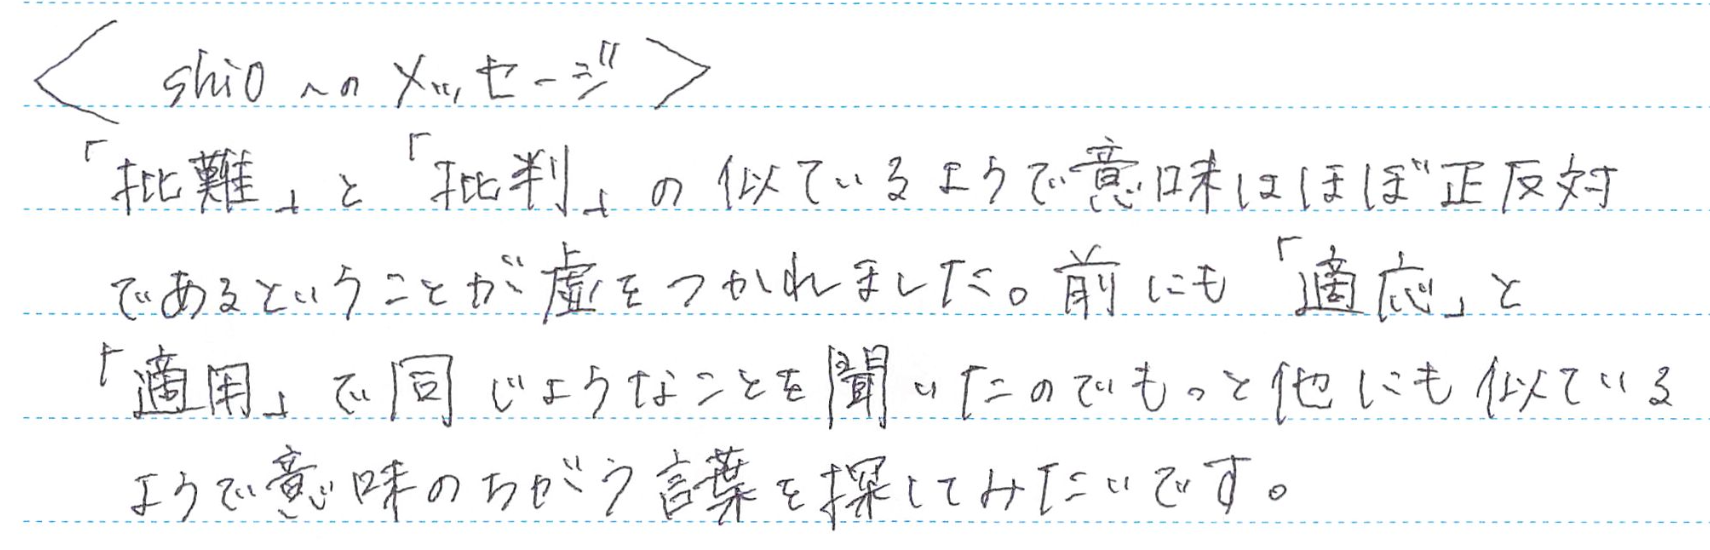 <shioへのメッセージ>
「批難」と「批判」の似ているようで意味はほぼ正反対
であるということが虚をつかれました。前にも「適応」と
「適用」で同じようなことを聞いたのでもっと他にも似ている
ようで意味のちがう言葉を探してみたいです。